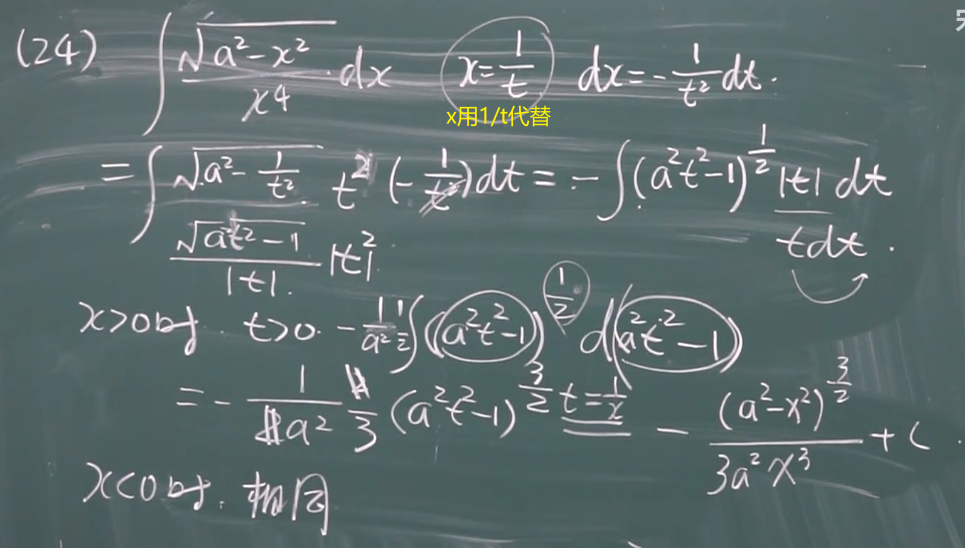 (24) ∫ √(a²-x²)/x⁴ dx x=1/t dx=-1/t² dt.
x用1/t代替
=∫ √(a²-1/t²) t⁴² (-1/t²)dt = -∫(a²t²-1)^(1/2) |t| dt
√(a²t²-1)/|t| |t|² tdt.
x>0时. t>0. -1/a² 1/2 ∫(a²t²-1)^(1/2) d(a²t²-1)
=-1/a² 1/3 (a²t²-1)^(3/2) t=1/x -(a²-x²)^(3/2)/(3a²x³) +C.
x<0时. 相同